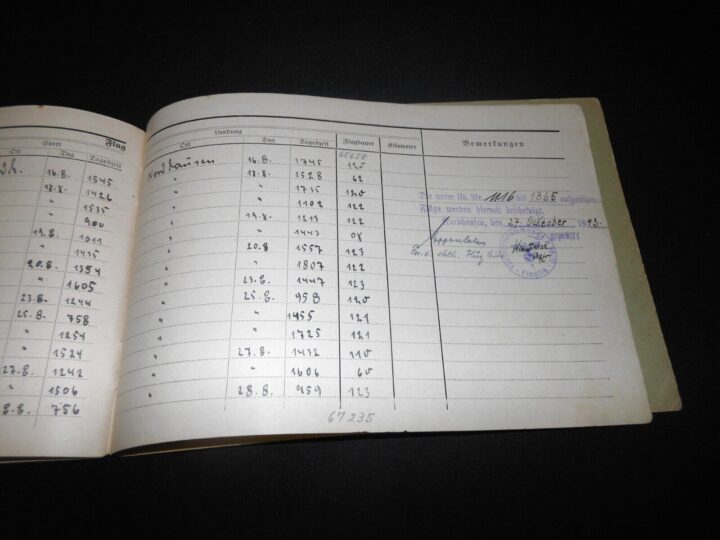 Flug
Start
Ort Tag Tageszeit
16.8. 1545
18.8. 1426
" 1535
" 900
19.8. 1011
" 1435
20.8. 1354
" 1605
23.8. 1244
25.8. 758
" 1254
" 1524
27.8. 1242
" 1506
8.8. 756
Landung
Ort Tag Tageszeit Flugdauer Kilometer Bemerkungen
65650
Nordhausen 16.8. 1745 120
" 18.8. 1528 62
" " 1735 120
" " 1102 122
" 19.8. 1213 122
" " 1443 08
" 20.8 1557 123
" " 1807 122
" 23.8. 1447 123
" 25.8. 958 120
" " 1455 121
" " 1725 121
" 27.8. 1432 110
" " 1606 60
" 28.8. 959 123
67235
Die unter lfd. Nr. 1116 bis 1365 aufgeführten
Flüge werden hiermit bescheinigt.
Nordhausen, den 27. Oktober 1943.
geprüft